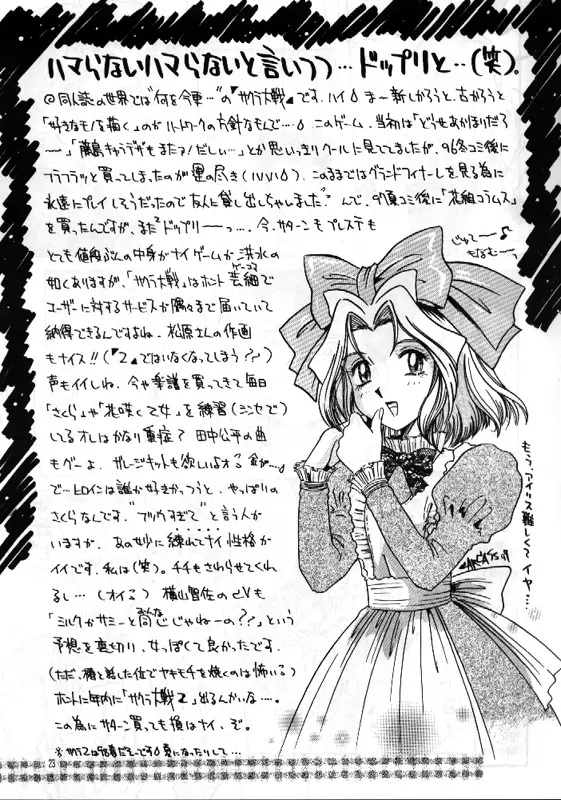 ハマらないハマらないと言いつつ…ドップリと‥(笑)。
◎同人誌の世界では"何を今更…"の『サクラ大戦』です。ハイ ま～新しかろうと、古かろうと
「好きなモノを描く」のがハートワークの方針なもんで…。このゲーム、当初は「どうせあかほりだろ
ー」「藤島キャラデザもまたァ!だしぃ…」とか思いっきりクールに見てましたが、96冬コミ後に
フラフラッと買ってしまったのが運の尽き(いいい)。このままではグランドフィナーレを見る為に
永遠にプレイしそうだったので友人に貸し出しちゃいました んで、コミ後に「花組コラムス」
を買ったんですが、まだドップリーーっ…。今、サターンもプレステも
とても値段ぶんの中身がナイゲームが洪水の
如くありますが、「サクラ大戦」はホント芸細で
ユーザーに対するサービスが隅々まで届いていて
納得できるんですよね。松原さんの作画
もナイス!!(『2』ではいなくなってしまう??)
声もイイしね。今や楽譜を買ってきて毎日
「さくら」や「花咲く乙女」を練習(シンセで)
してるオレはかなり重症? 田中公平の曲
もグーよ。ガレージキットも欲しいよオる 金が…。
で…ヒロインは誰が好きかっつうと、やっぱりの
さくらなんです。"ブリッすぎて"と言う人が
いますが、あの妙に練れてナイ性格が
イイです、私は(笑)。チチもさわらせてくれ
るし…(オイ) 横山智佐のCVも
「ミルクかサミーと同じ感じじゃねーの??」という
予想を裏切り、女っぽくて良かったです。
(ただ、椿と話した位でヤキモチを焼くのは怖いる)
ホントに年内に「サクラ大戦2」出るんかいな…。
この為にサターン買っても損はナイ、ぞ。
※サクラ2は98春だそうです 夏になったりして…
じゃで～♪
もなむーっ
もう、アイリス難しくてイヤ…
23